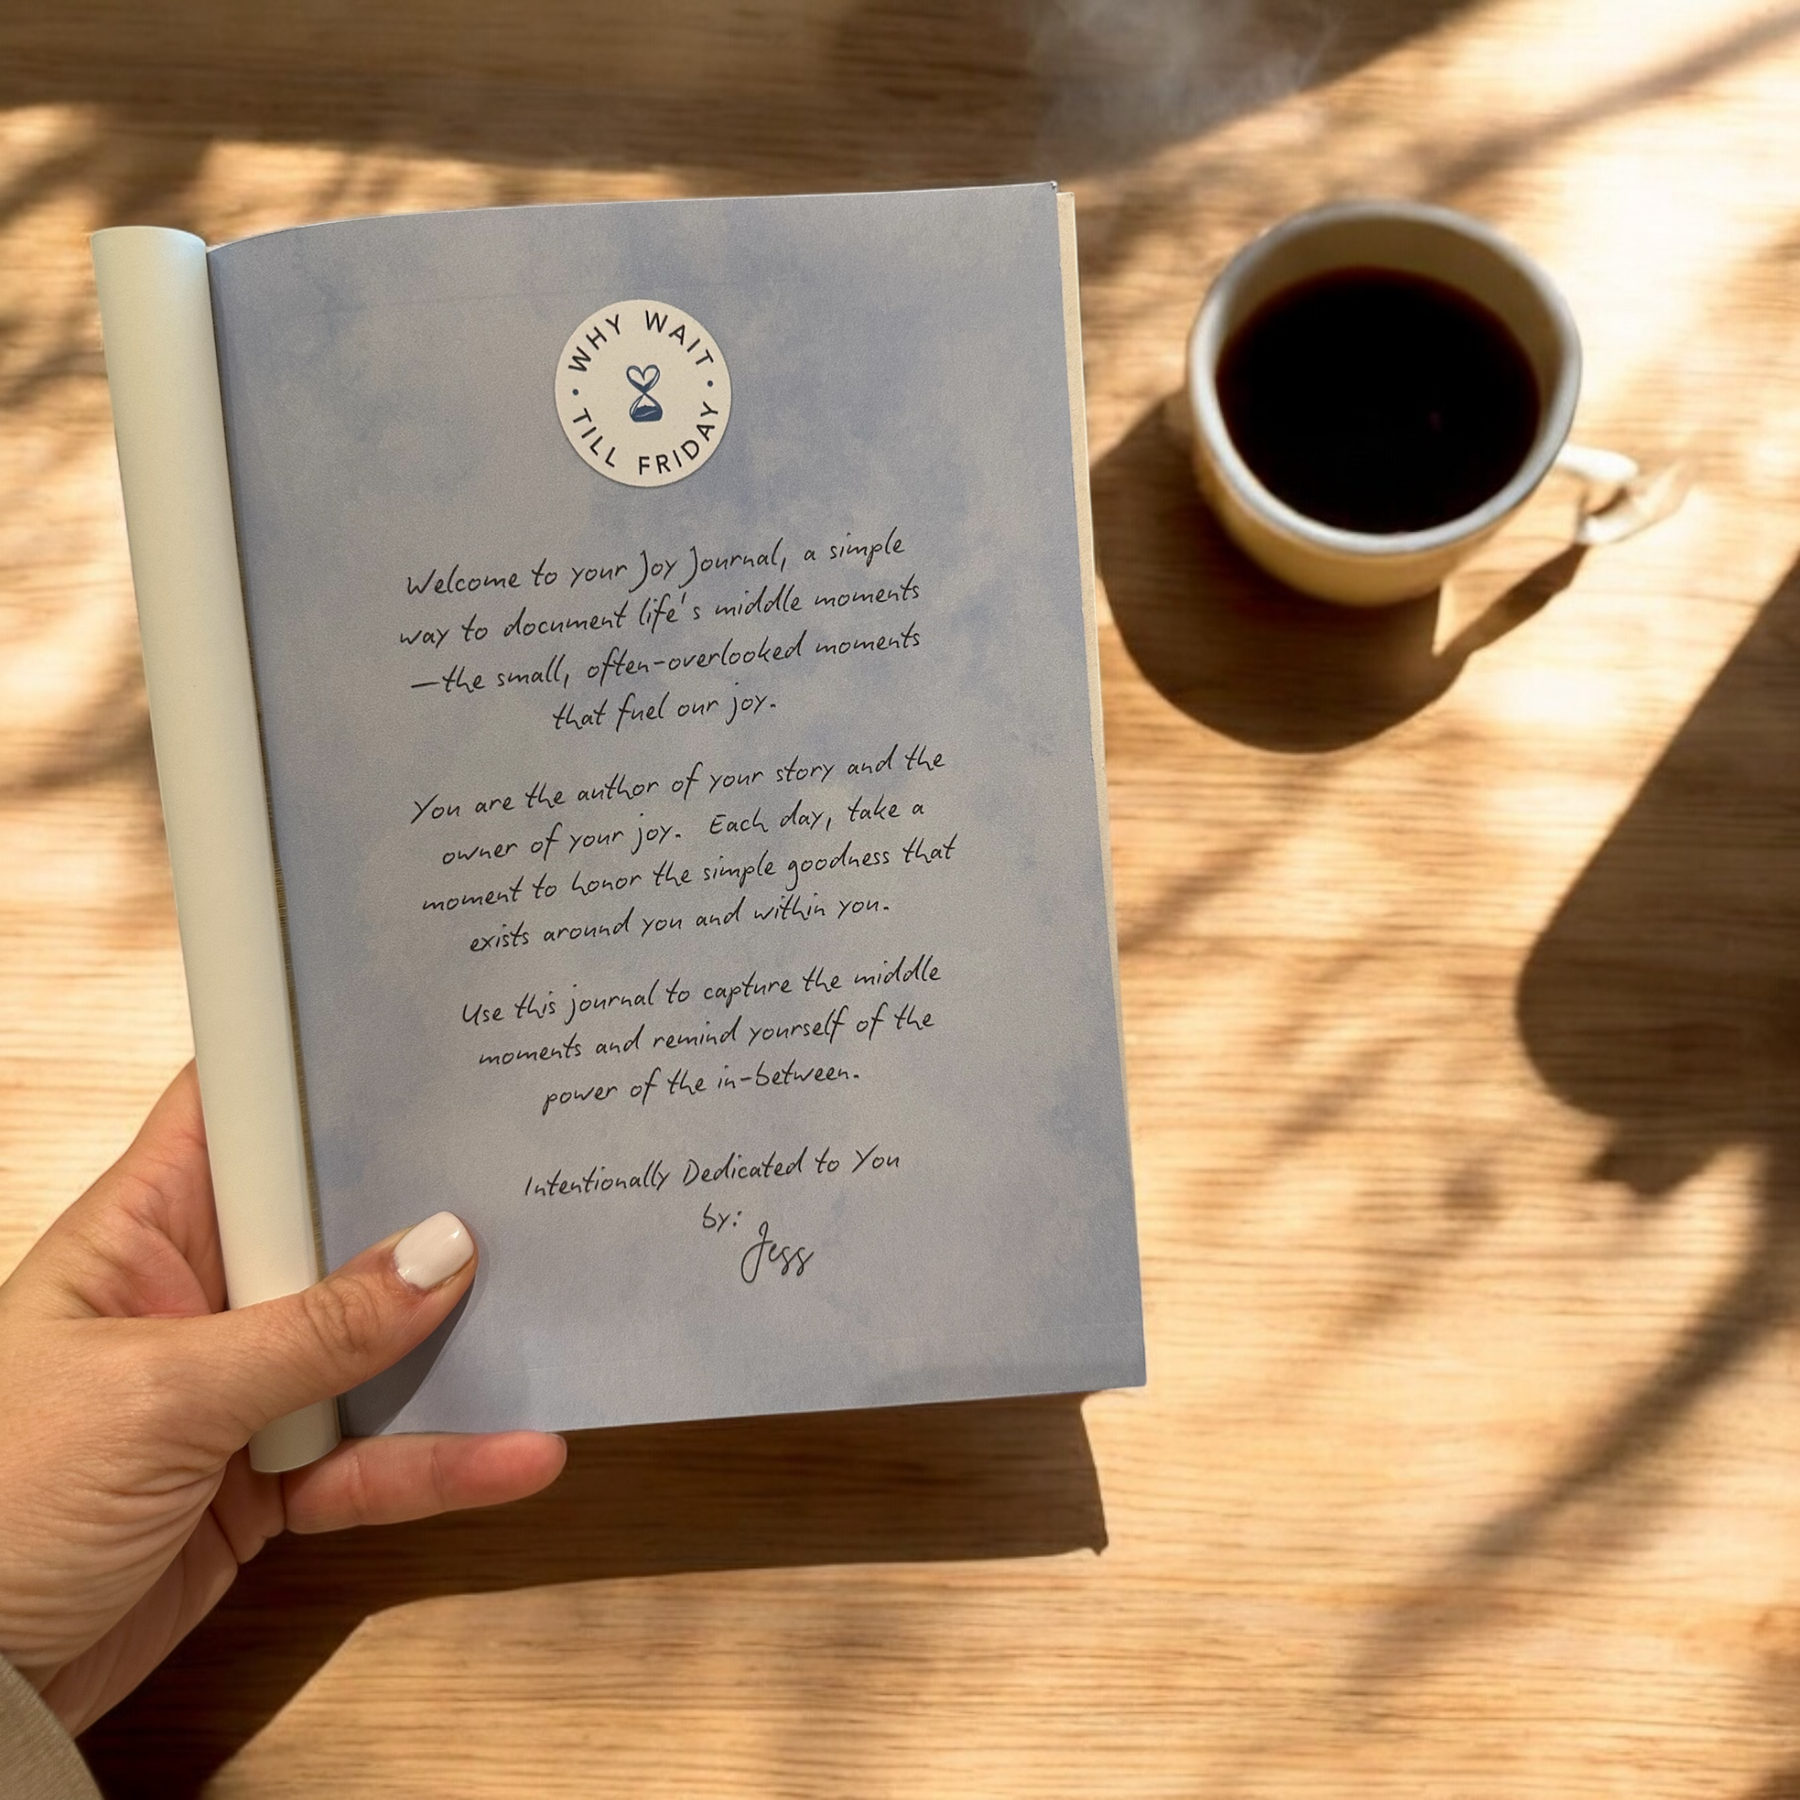 WHY WAIT
TILL FRIDAY
Welcome to your Joy Journal, a simple
way to document life's middle moments
—the small, often-overlooked moments
that fuel our joy.
You are the author of your story and the
owner of your joy. Each day, take a
moment to honor the simple goodness that
exists around you and within you.
Use this journal to capture the middle
moments and remind yourself of the
power of the in-between.
Intentionally Dedicated to You
by:
Jess